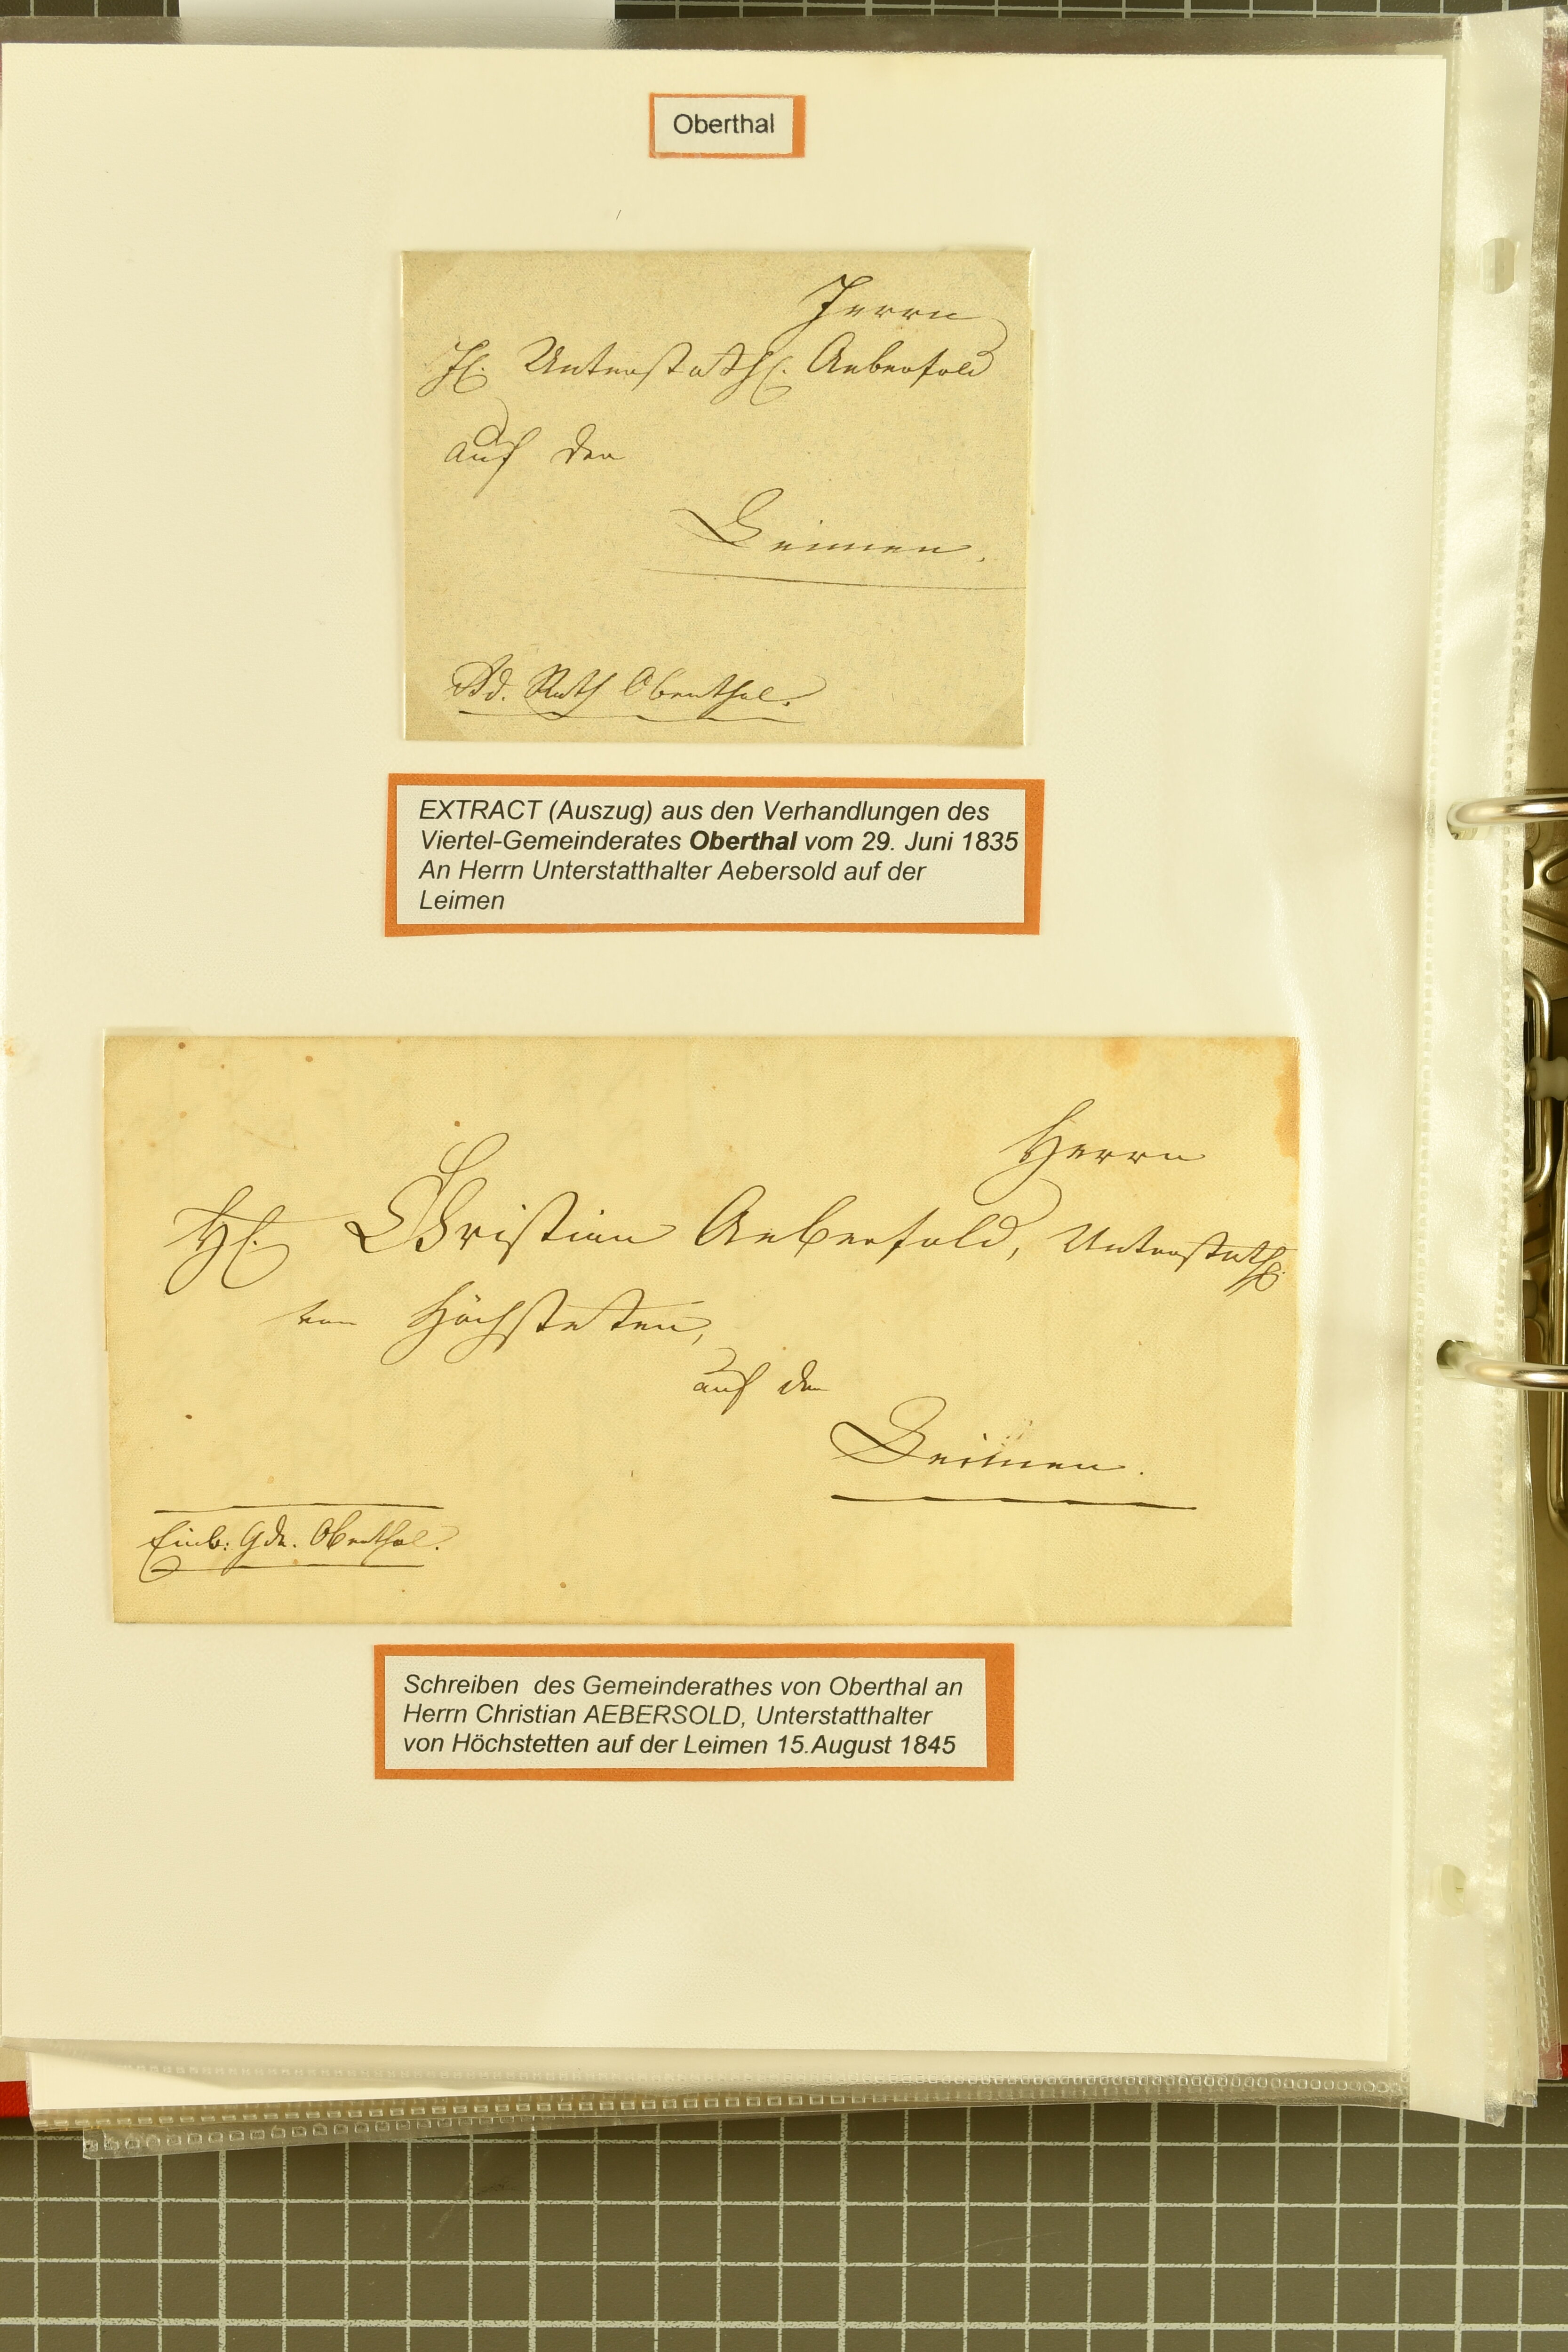 Oberthal
Herrn
H. Unterstatth. Aebersold
auf der
Leimen.
Rath Oberthal.
EXTRACT (Auszug) aus den Verhandlungen des
Viertel-Gemeinderates Oberthal vom 29. Juni 1835
An Herrn Unterstatthalter Aebersold auf der
Leimen
Herrn
H. Christian Aebersold, Unterstatth.
von Höchsteten,
auf der
Leimen.
Oberthal.
Schreiben des Gemeinderathes von Oberthal an
Herrn Christian AEBERSOLD, Unterstatthalter
von Höchstetten auf der Leimen 15.August 1845